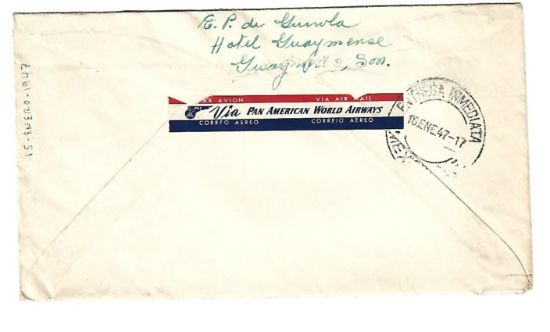 E. P. de
Hotel Guaymense
Guaymas, Son.
PAR AVION VIA AIR MAIL
Via PAN AMERICAN WORLD AIRWAYS
CORREO AEREO CORREIO AEREO
ENTREGA INMEDIATA
16 ENE 47-17
15-ENERO-1947